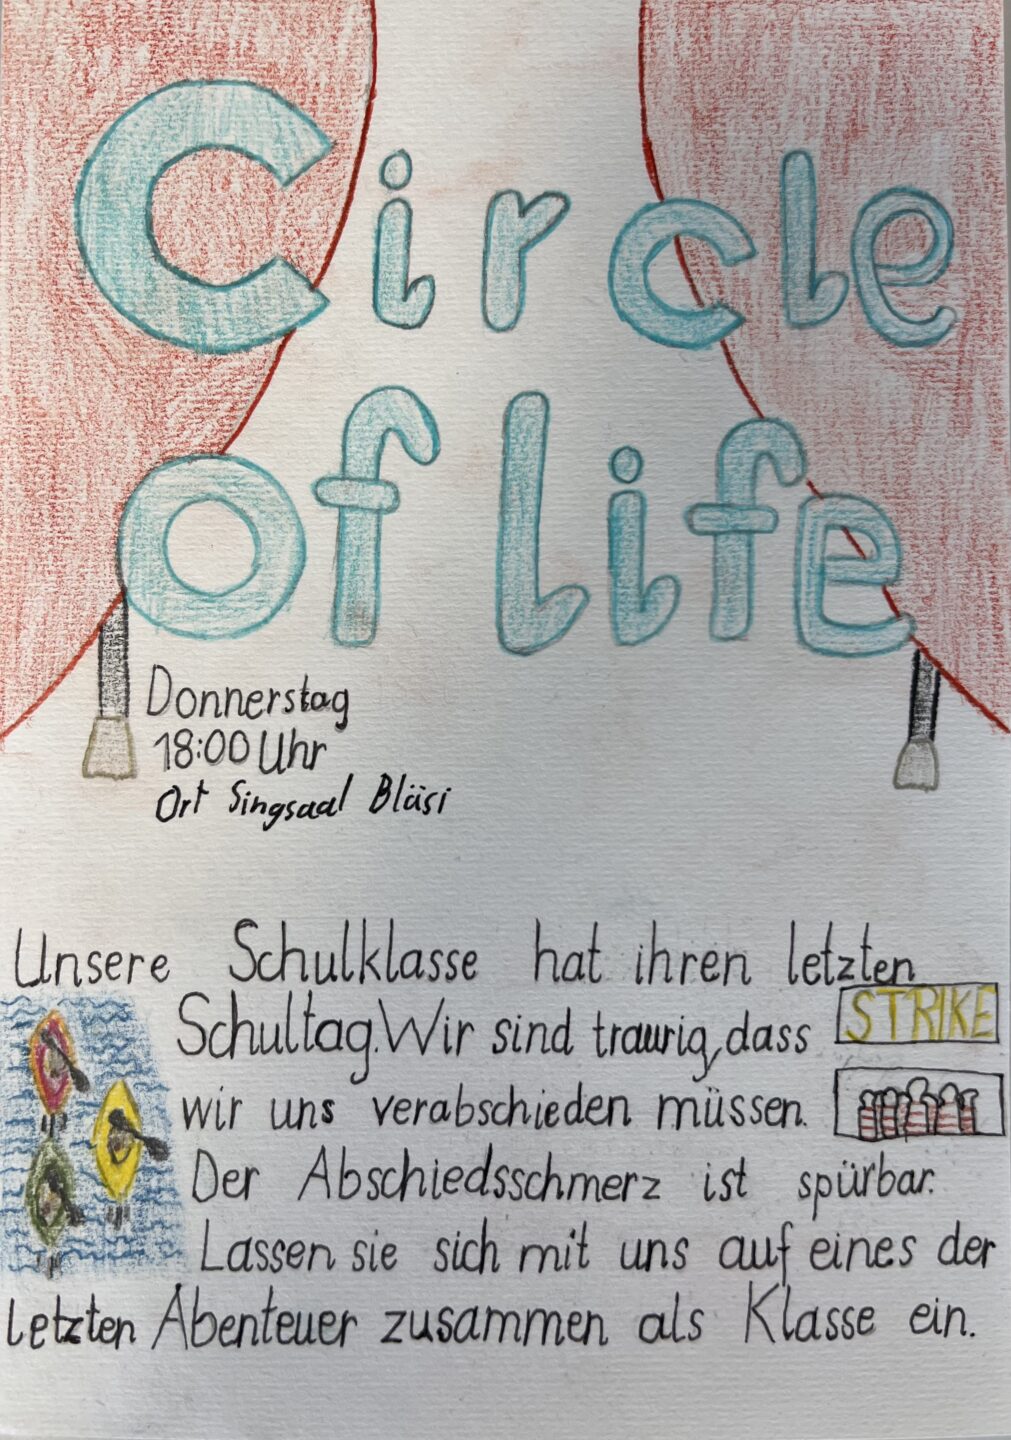 Circle
of life
Donnerstag
18:00 Uhr
Ort Singsaal Bläsi
Unsere Schulklasse hat ihren letzten
Schultag. Wir sind traurig, dass
STRIKE
wir uns verabschieden müssen.
Der Abschiedsschmerz ist spürbar.
Lassen sie sich mit uns auf eines der
letzten Abenteuer zusammen als Klasse ein.